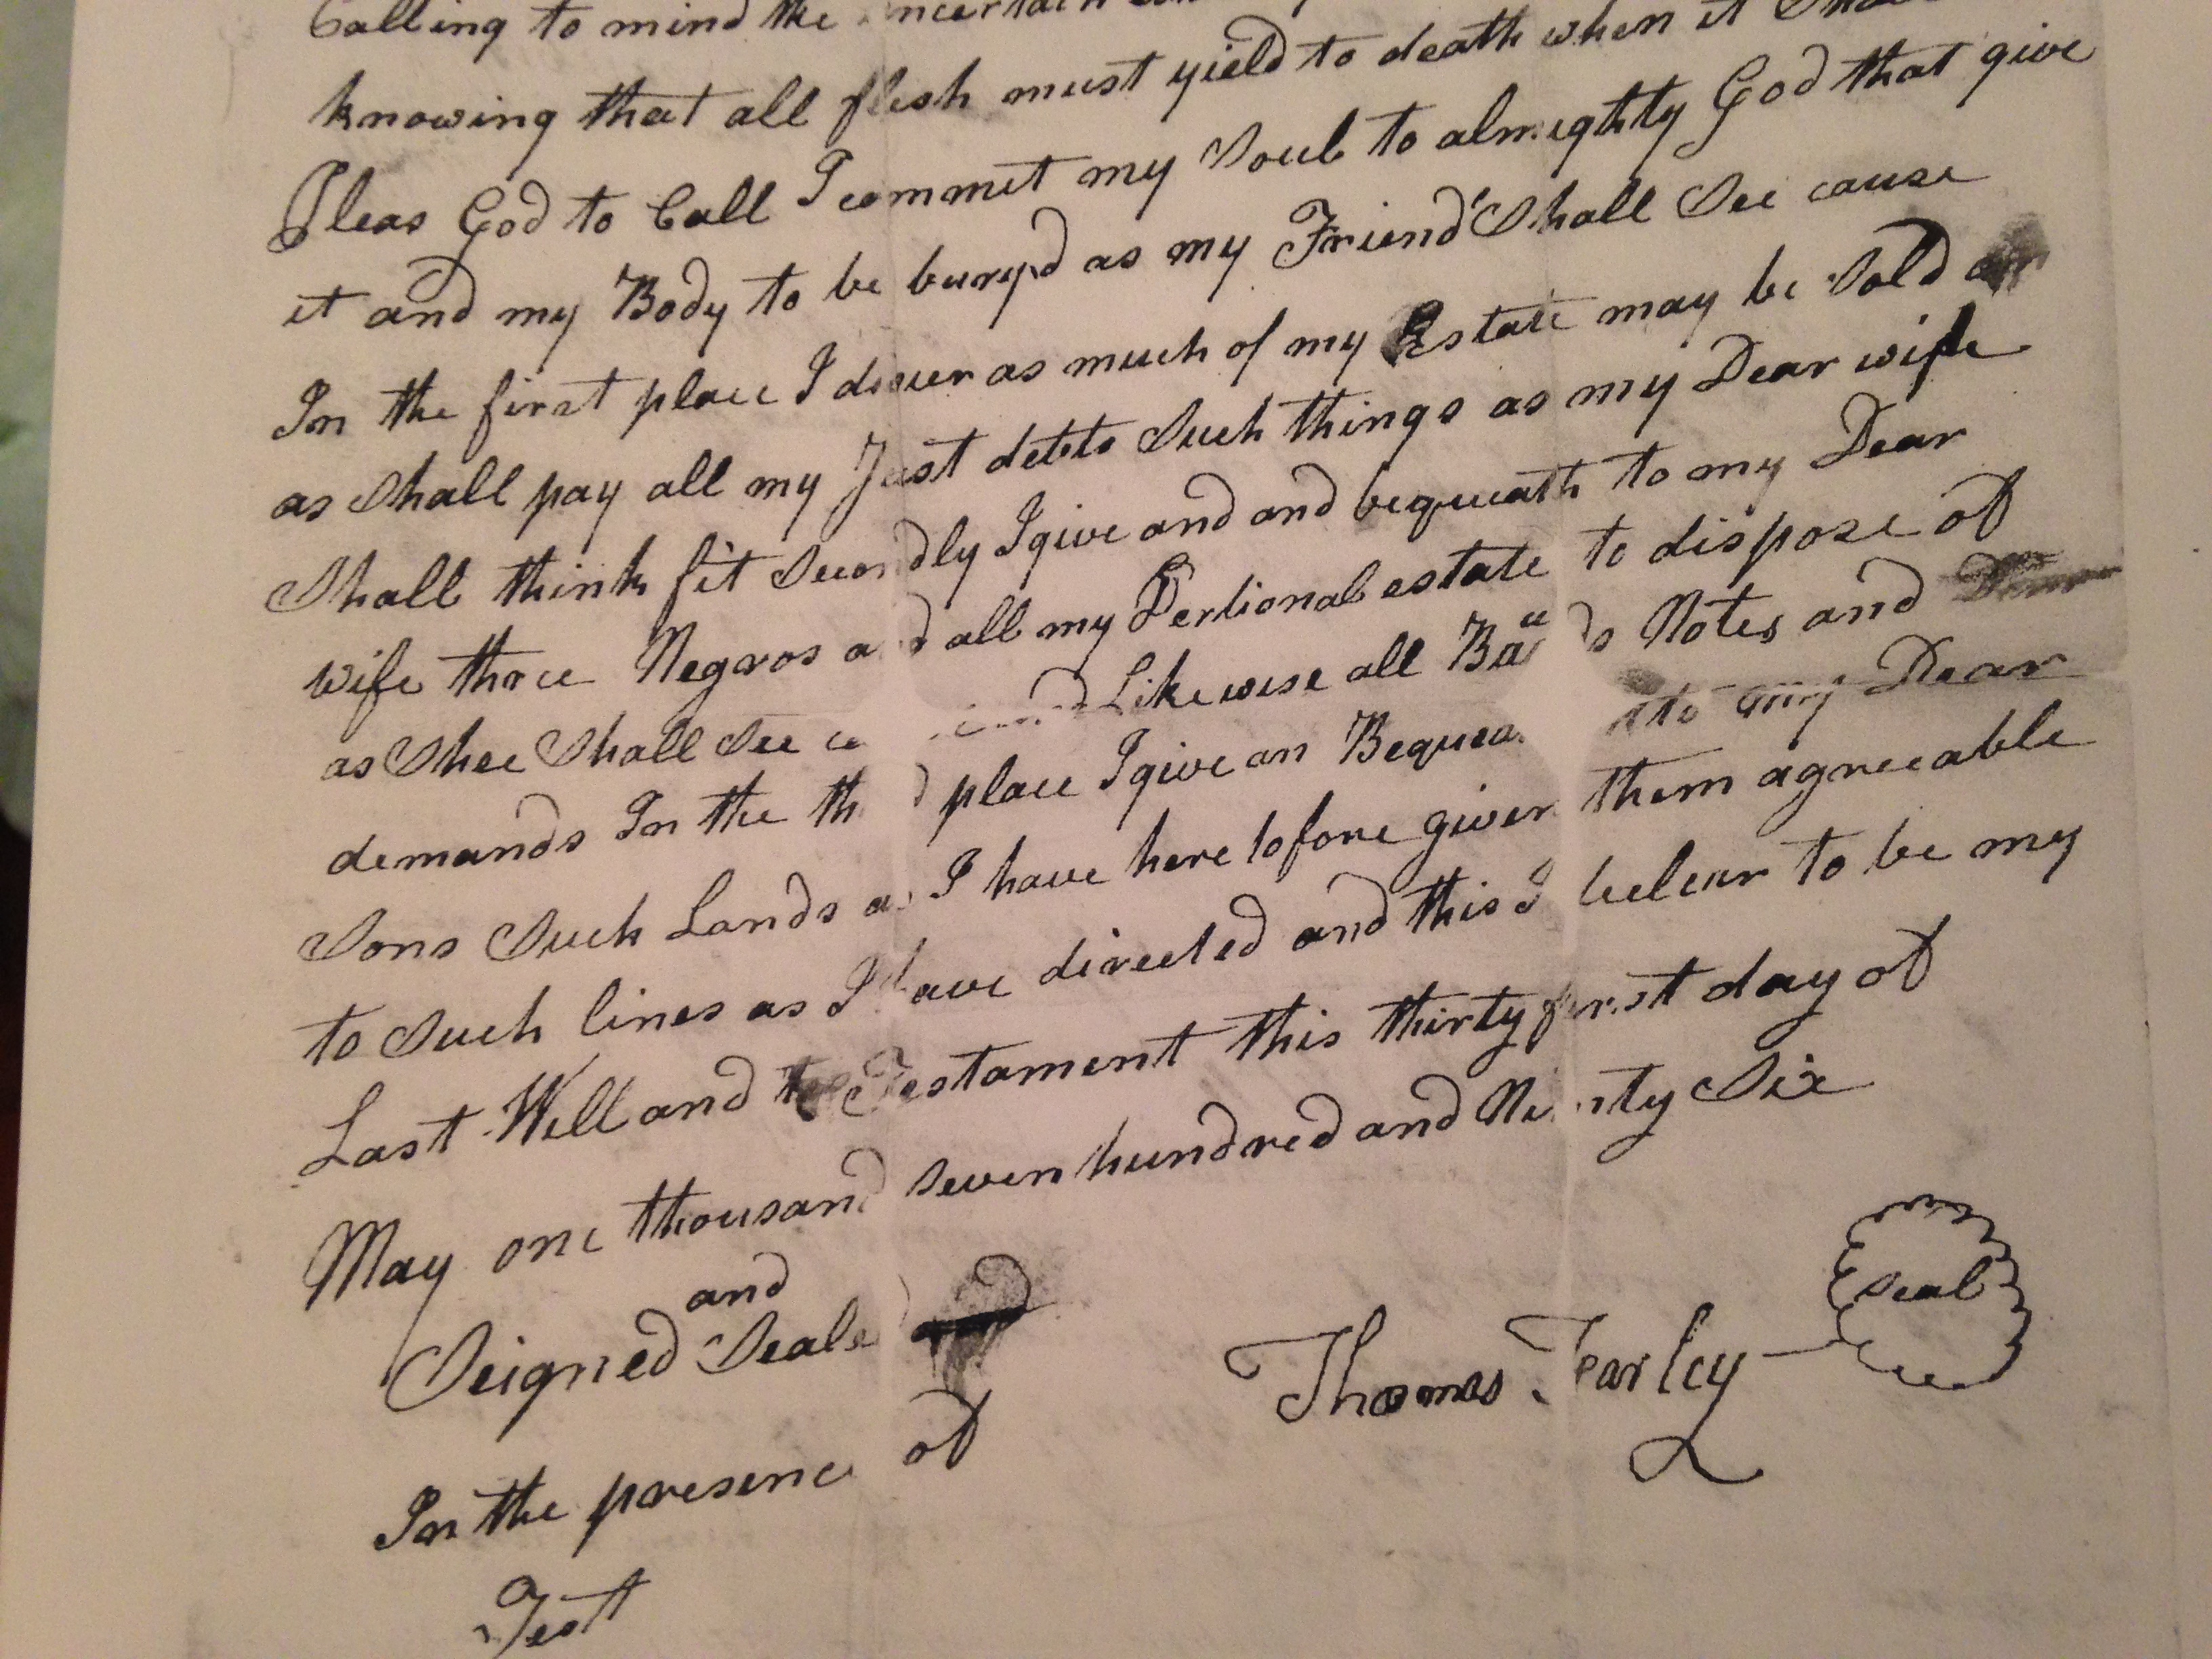 Calling to mind the
knowing that all flesh must yield to death when it
Pleas God to Call I commit my Soul to almightty God that give
it and my Body to be buryd as my Friend Shall See cause
In the first place I desier as much of my Estate may be Sold
as Shall pay all my Just debts Such things as my Dear wife
Shall think fit Secondly I give and and bequeath to my Dear
wife three Negros and all my Perlional estate to dispose of
as Shee Shall See Likewise all Notes and
demands In the place I give an to my Dear
Sons Such Lands as I have here tofore given them agreeable
to Such lines as I have directed and this I to be my
Last Will and Testament this thirty first day of
May one thousand Seven hundred and Ninty Six
and
Seigned Seald
In the presence of
Thomas Farley
Seal
Test